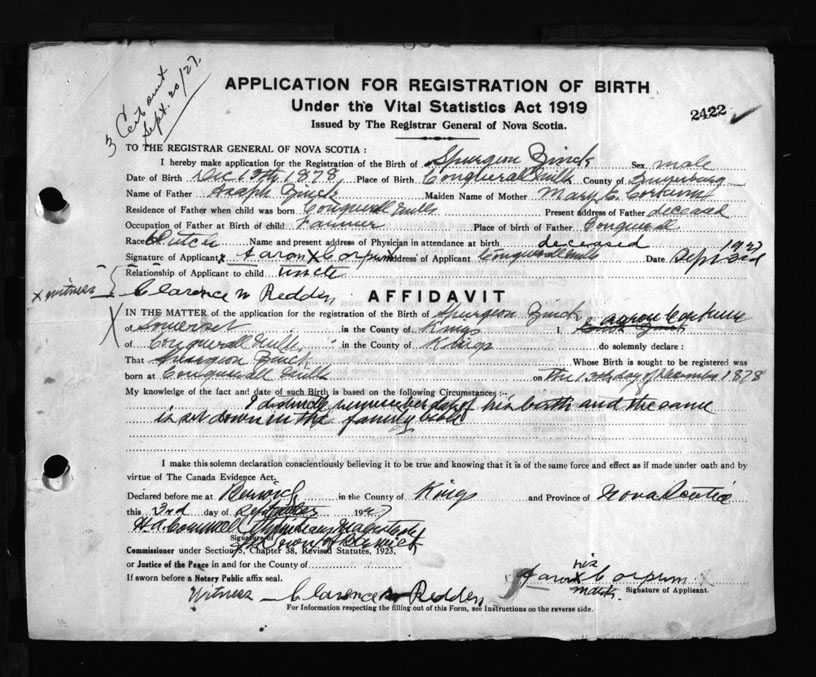 3 Cert sent
Sept. 20/27.
APPLICATION FOR REGISTRATION OF BIRTH
Under the Vital Statistics Act 1919
2422
Issued by The Registrar General of Nova Scotia.
TO THE REGISTRAR GENERAL OF NOVA SCOTIA :
I hereby make application for the Registration of the Birth of Spurgeon Zinck Sex male
Date of Birth Dec 13th 1878 Place of Birth Conquerall Mills County of Lunenburg
Name of Father Joseph Zinck Maiden Name of Mother Mary E. Corkum
Residence of Father when child was born Conquerall Mills Present address of Father deceased
Occupation of Father at Birth of child Farmer Place of birth of Father Conquerall
Race Dutch Name and present address of Physician in attendance at birth deceased
Signature of Applicant Aaron X Corpum Address of Applicant Conquerall Mills Date Sept 3rd 1927
Relationship of Applicant to child uncle
x witness Clarence M Redden
AFFIDAVIT
IN THE MATTER of the application for the registration of the Birth of Spurgeon Zinck I, Aaron Corkum
of Somerset in the County of Kings
of Conquerall Mills in the County of Kings do solemnly declare :
That Spurgeon Zinck Whose Birth is sought to be registered was
born at Conquerall Mills on the 13th day of December 1878
My knowledge of the fact and date of such Birth is based on the following Circumstances :-
I distinctly remember day of his birth and the same
is set down in the family bible
I make this solemn declaration conscientiously believing it to be true and knowing that it is of the same force and effect as if made under oath and by
virtue of The Canada Evidence Act.
Declared before me at Berwick in the County of Kings and Province of Nova Scotia
this 3rd day of September 1927
Stipendiary Magistrate
Signature of
for Town of Berwick
Commissioner under Section 5, Chapter 38, Revised Statutes, 1923,
or Justice of the Peace in and for the County of
his
If sworn before a Notary Public affix seal.
Aaron X Corpum
mark. Signature of Applicant.
Witness Clarence M Redden
For Information respecting the filling out of this Form, see Instructions on the reverse side.